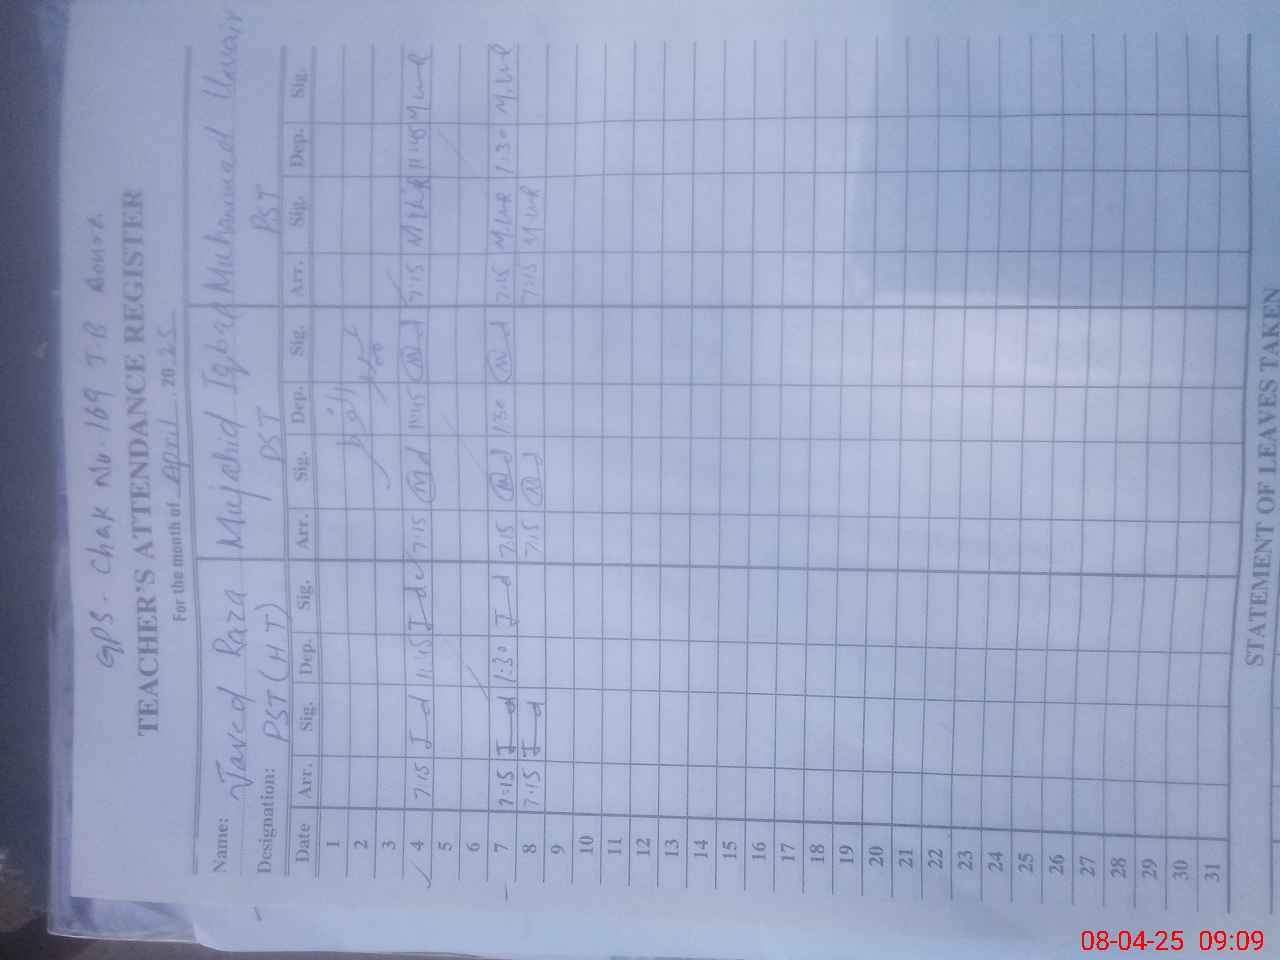 GPS. Chak No. 169 J.B
TEACHER'S ATTENDANCE REGISTER
For the month of April 2025
Name: Javed Raza Mujahid Iqbal Muhammad Umair
Designation: PST (HT) PST PST
Date Arr. Sig. Dep. Sig. Arr. Sig. Dep. Sig. Arr. Sig. Dep. Sig.
1
2
3
4 7:15 J d 11:45 7:15 Md 11:45 Md 7:15 11:45
5
6
7 7:15 J d 1:30 J d 7:15 Md 1:30 Md 7:15 M.UR 1:30 M.UR
8 7:15 J d 7:15 Md 7:15 M.UR
9
10
11
12
13
14
15
16
17
18
19
20
21
22
23
24
25
26
27
28
29
30
31
STATEMENT OF LEAVES TAKEN
08-04-25 09:09